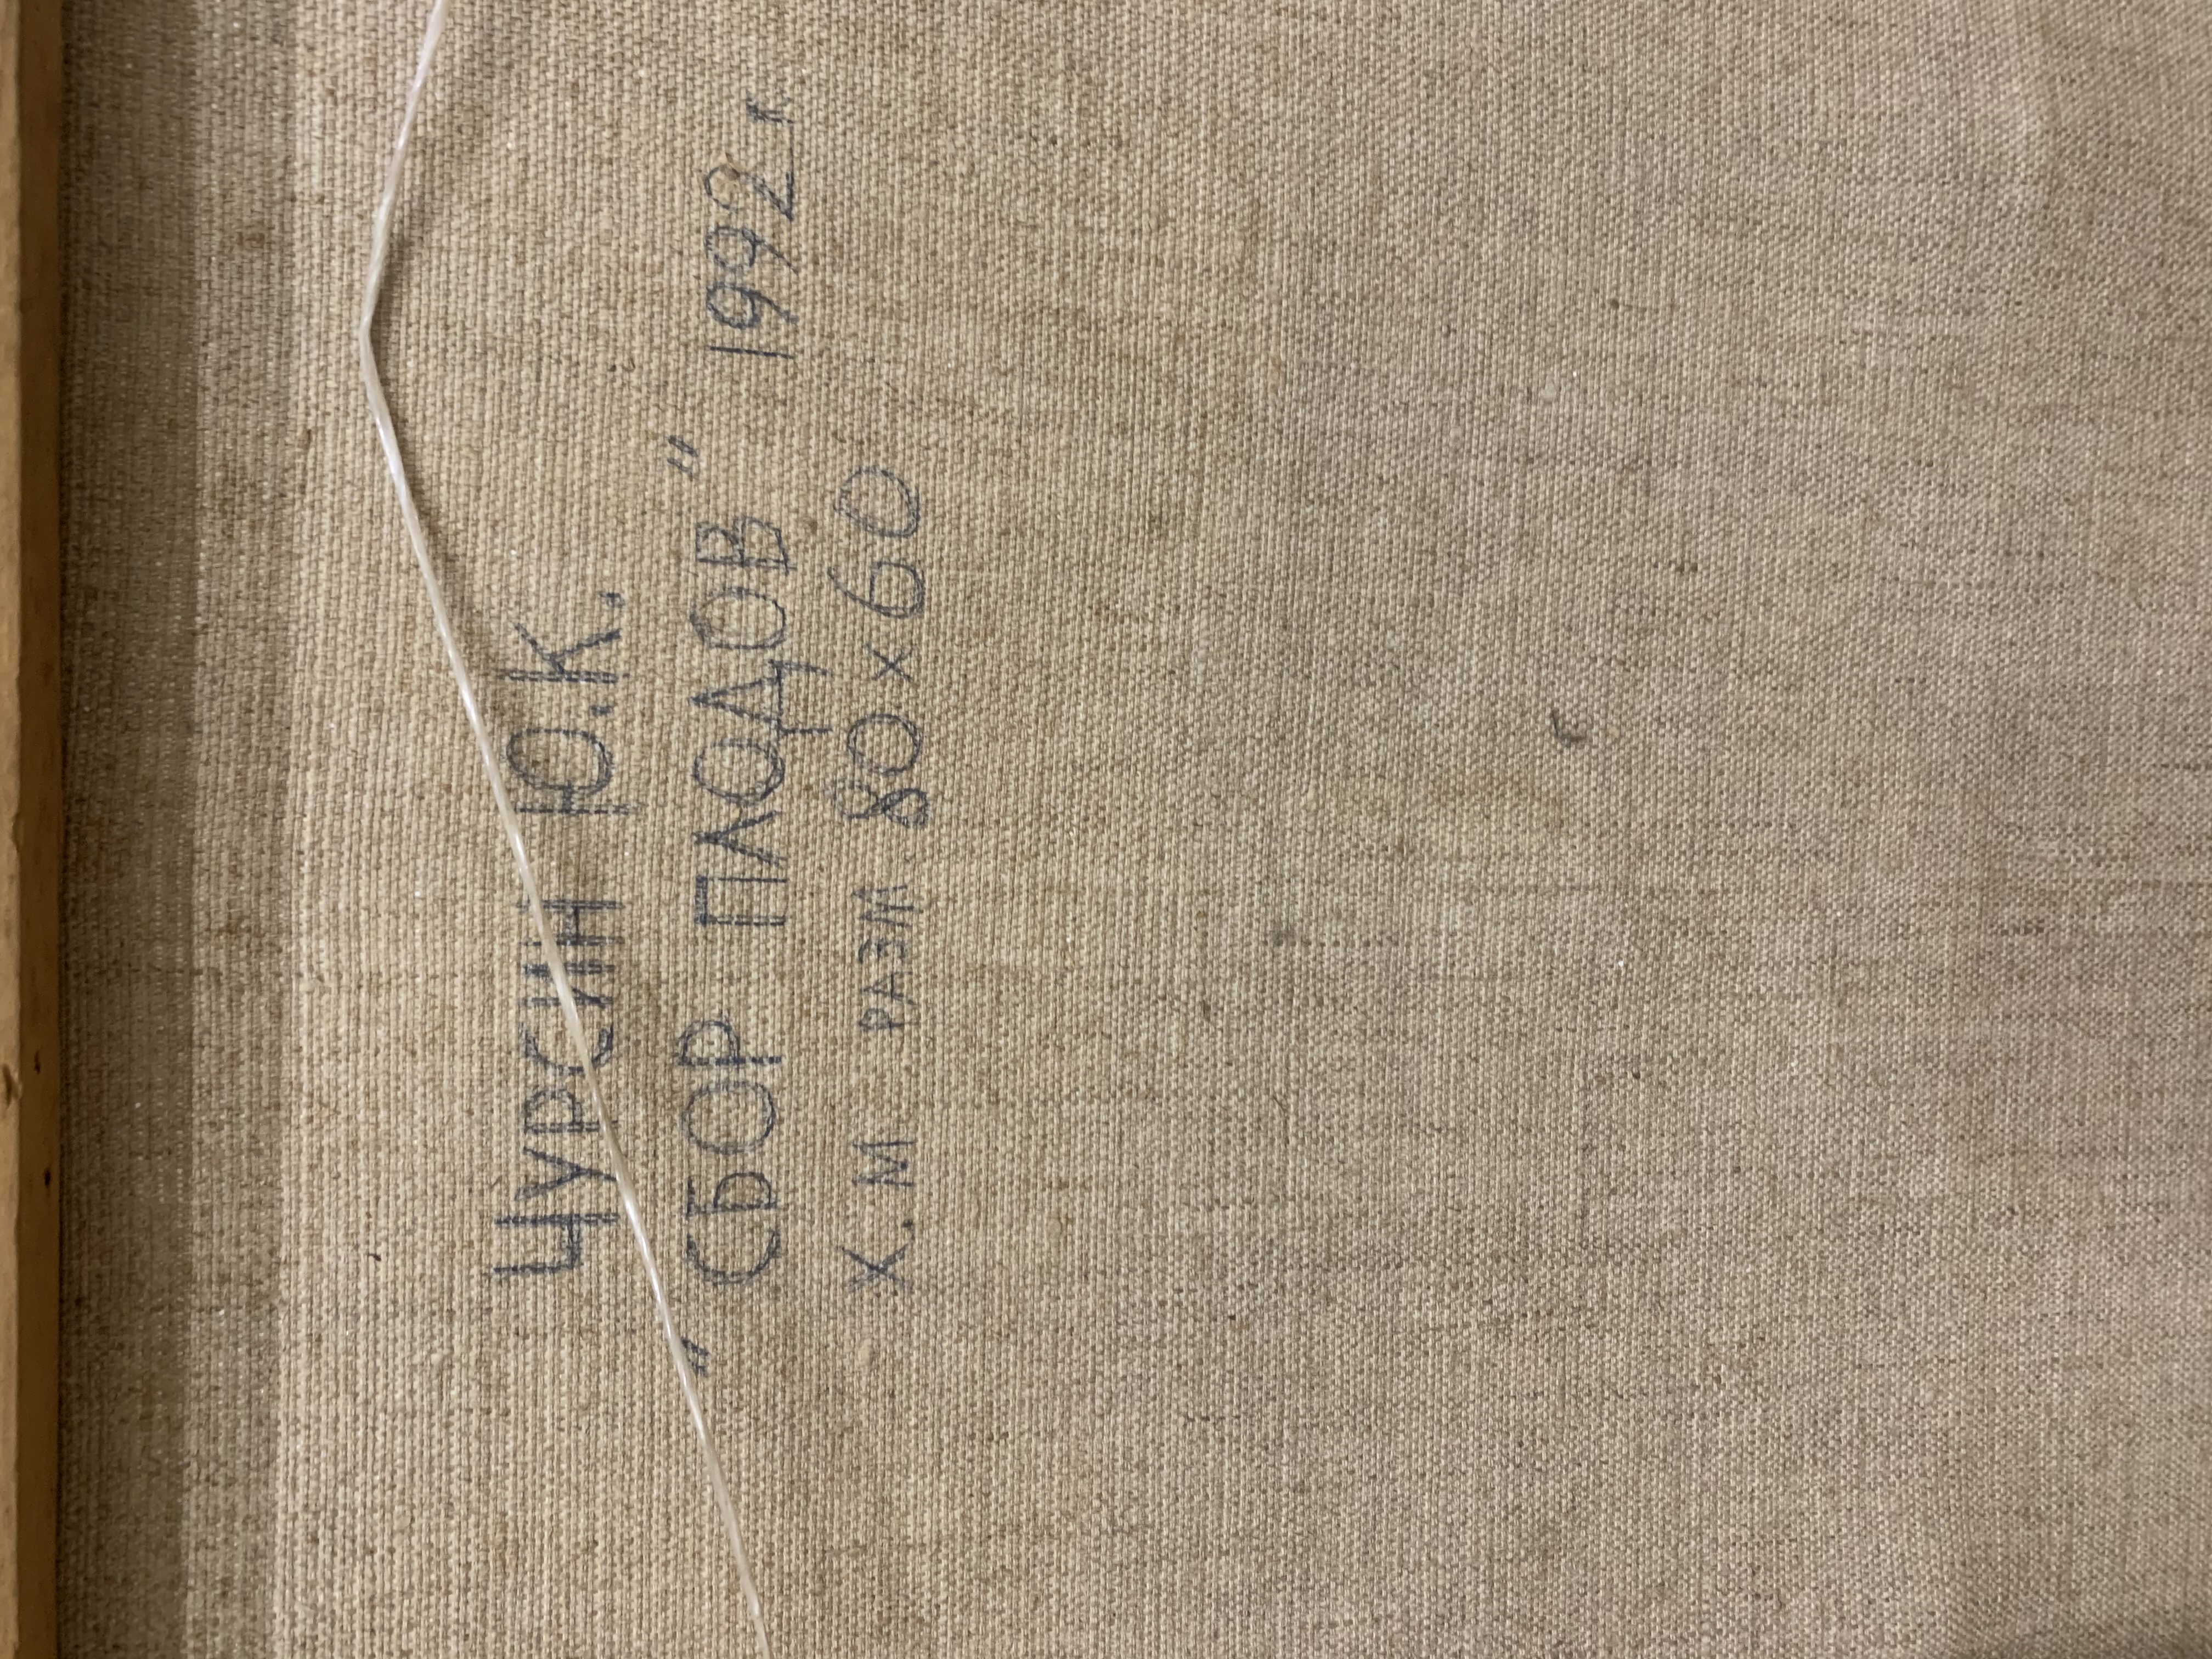 ЧУРСИН Ю.К.
"СБОР ПЛОДОВ" 1992 г.
Х.М РАЗМ. 80×60